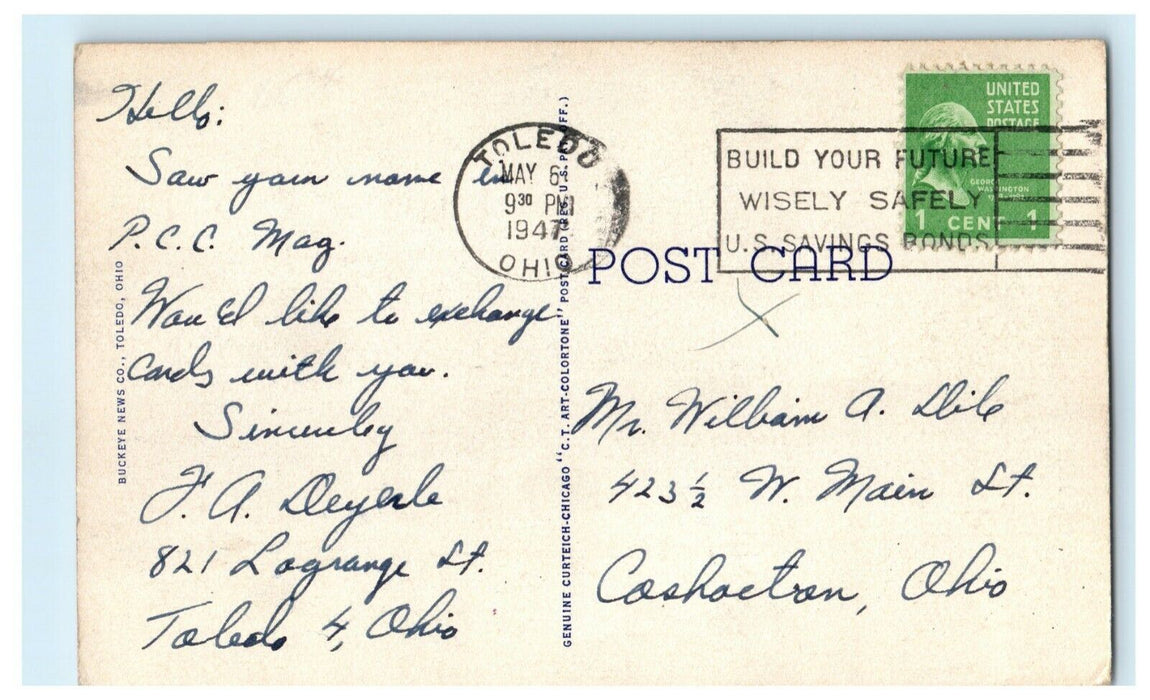 Hello:
Saw your name in
P.C.C. Mag.
Would like to exchange
cards with you.
Sincerely
F. A. Deyerle
821 Lagrange St.
Toledo 4, Ohio
BUCKEYE NEWS CO., TOLEDO, OHIO
GENUINE CURTEICH-CHICAGO "C.T. ART-COLORTONE" POST CARD (REG. U.S. PAT. OFF.)
TOLEDO
MAY 6
9³⁰ PM
1947
OHIO
BUILD YOUR FUTURE
WISELY SAFELY
U.S. SAVINGS BONDS
UNITED
STATES
POSTAGE
GEORGE
WASHINGTON
1 CENT 1
POST CARD
Mr. William A.
423 ½ W. Main St.
Coshocton, Ohio